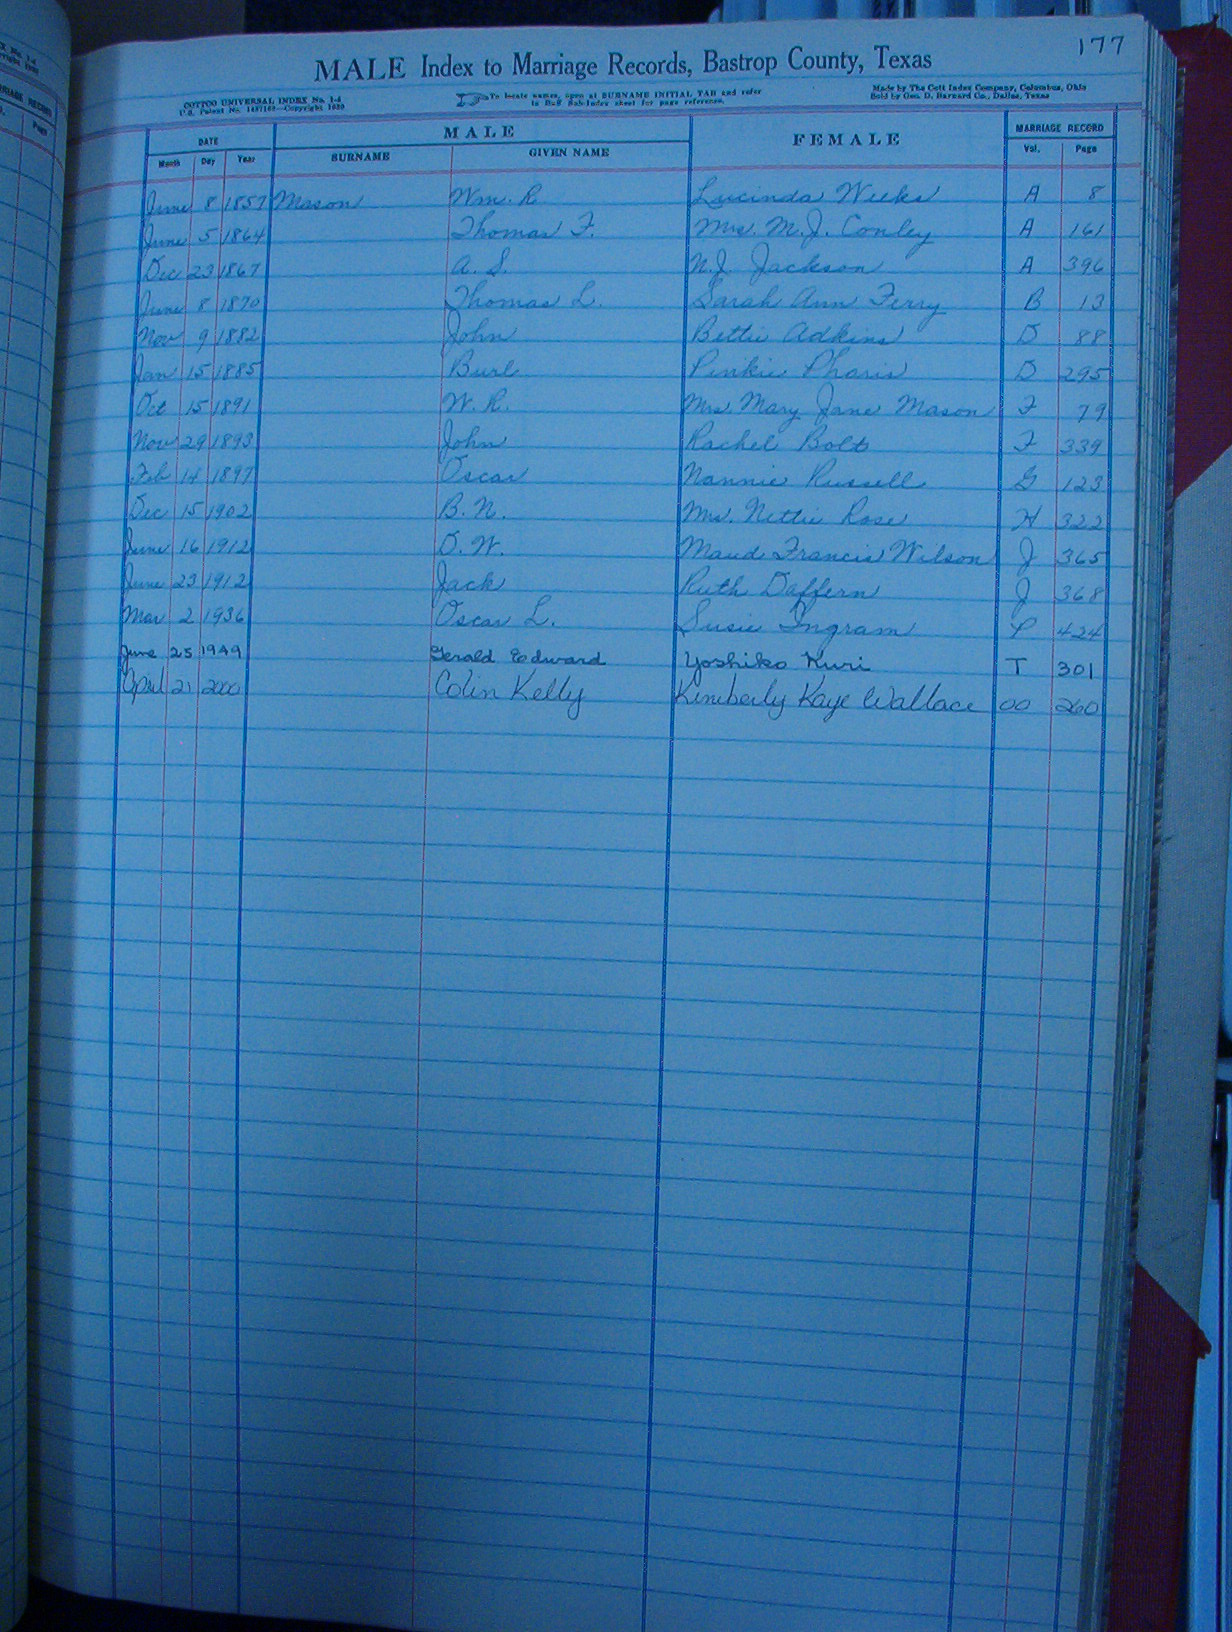 177
MALE Index to Marriage Records, Bastrop County, Texas
COTTCO UNIVERSAL INDEX No. 1-4
To locate names, open at SURNAME INITIAL TAB and refer
to Buff Sub-Index sheet for page reference.
Made by The Cott Index Company, Columbus, Ohio
Sold by Geo. D. Barnard Co., Dallas, Texas
DATE MALE FEMALE MARRIAGE RECORD
Month Day Year SURNAME GIVEN NAME Vol. Page
June 8 1857 Mason Wm. R. Lucinda Weeks A 8
June 5 1864 Thomas F. Mrs. M.J. Conley A 161
Dec 23 1867 A. S. N.J. Jackson A 396
June 8 1870 Thomas L. Sarah Ann Ferry B 13
Nov 9 1882 John Bettie Adkins D 88
Jan 15 1885 Burl Pinkie Pharis D 295
Oct 15 1891 W. R. Mrs. Mary Jane Mason F 79
Nov 29 1893 John Rachel Bolt F 339
Feb 14 1897 Oscar Nannie Russell G 123
Dec 15 1902 B. N. Mrs. Nettie Rose H 322
June 16 1912 O. W. Maud Francis Wilson J 365
June 23 1912 Jack Ruth Daffern J 368
Mar 2 1936 Oscar L. Susie Ingram P 424
June 25 1949 Gerald Edward Yoshiko Kuri T 301
April 21 2000 Colin Kelly Kimberly Kaye Wallace OO 260